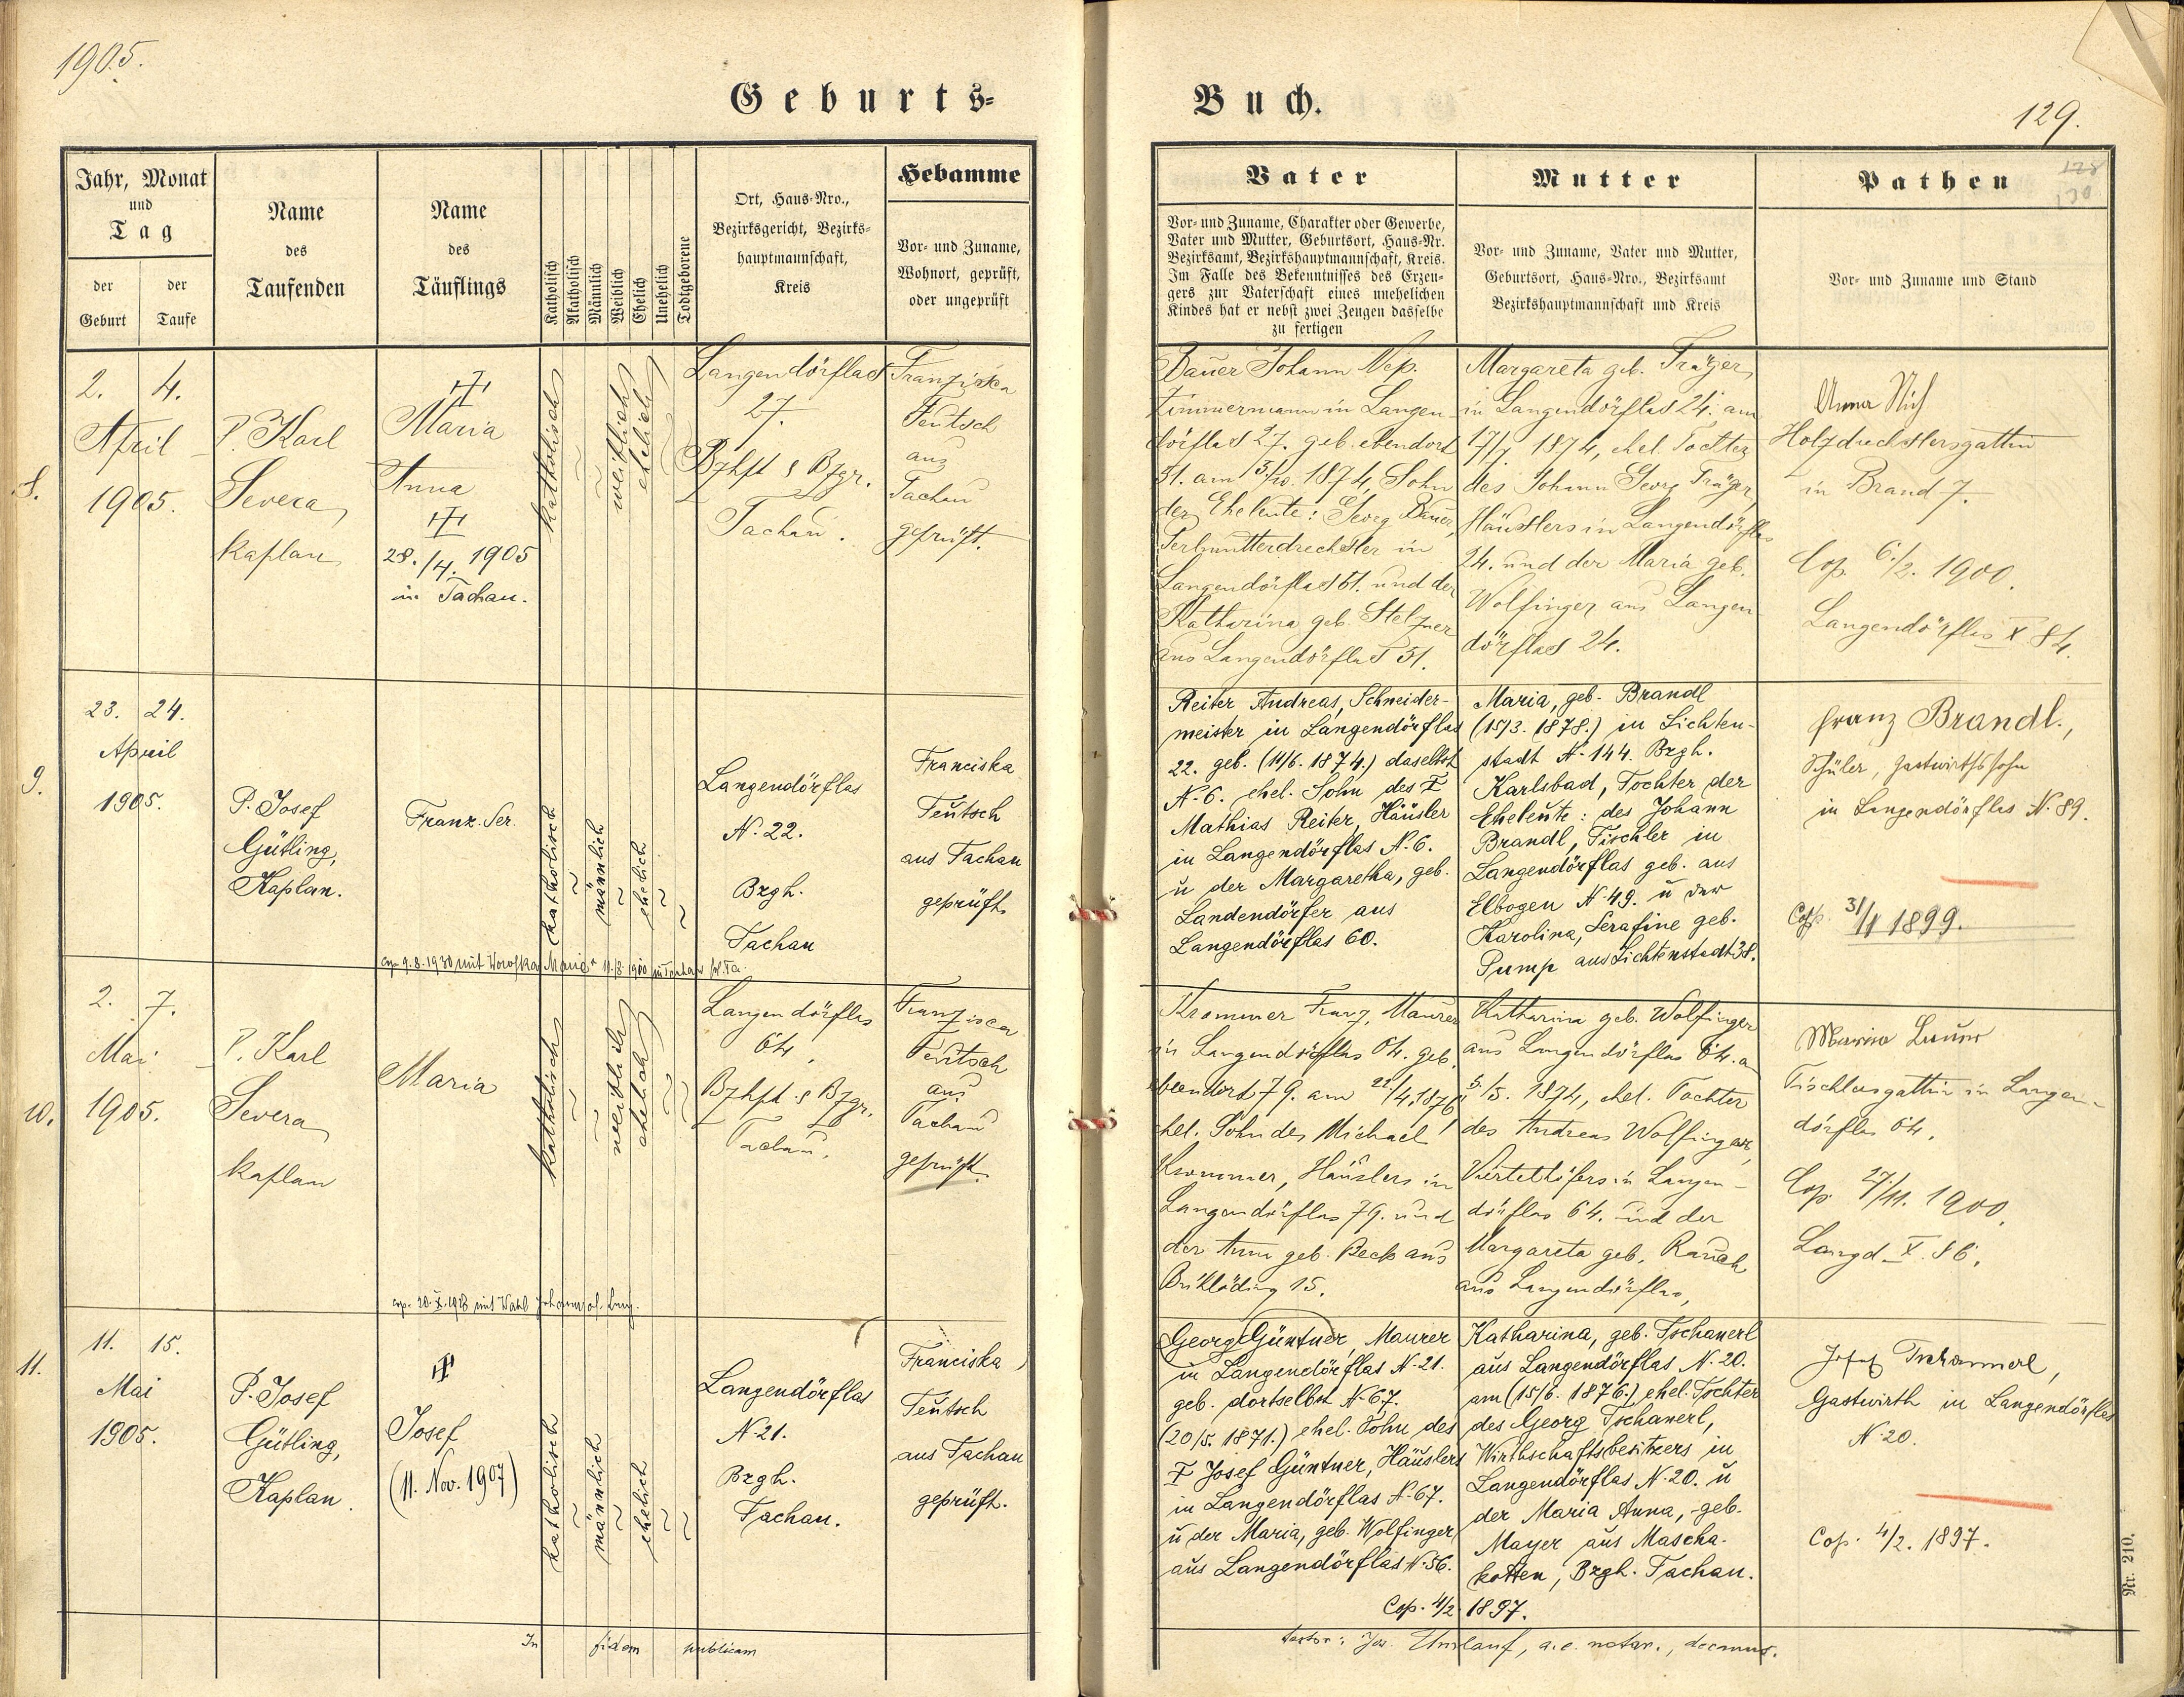 1905.
Geburts-
Jahr, Monat
und
Tag
der
Geburt
der
Taufe
Name
des
Taufenden
Name
des
Täuflings
Katholisch
Akatholisch
Männlich
Weiblich
Ehelich
Unehelich
Todtgeborene
Ort, Haus-Nro.,
Bezirksgericht, Bezirks-
hauptmannschaft,
Kreis
Hebamme
Vor- und Zuname,
Wohnort, geprüft,
oder ungeprüft
8.
2. 4.
April
1905.
P. Karl
Severa,
Kaplan
Maria
Anna
28./4. 1905
in Tachau.
katholisch
weiblich
ehelich
Langendörflas
27.
Bzhft & Bzgr.
Tachau.
Franziska
Teutsch
aus
Tachau
geprüft.
9.
23. 24.
April
1905.
P. Josef
Gütling,
Kaplan.
Franz. Ser.
katholisch
männlich
ehelich
Langendörflas
N. 22.
Bzgh.
Tachau
Franciska
Teutsch
aus Tachau
geprüft
cop. 9.8.1930 mit Maria
10.
2. 7.
Mai
1905.
P. Karl
Severa
Kaplan
Maria
katholisch
weiblich
ehelich
Langendörflas
64.
Bzhft. & Bzgr.
Tachau.
Franzisca
Teutsch
aus
Tachau
geprüft.
cop. 20. X. 1928 mit Wahl Johann
11.
11. 15.
Mai
1905.
P. Josef
Gütling,
Kaplan.
Josef
(11. Nov. 1907)
katholisch
männlich
ehelich
Langendörflas
N. 21.
Bzgh.
Tachau.
Franciska
Teutsch
aus Tachau
geprüft.
In fidem publicam
Buch.
129.
128
130
Vater
Vor- und Zuname, Charakter oder Gewerbe,
Vater und Mutter, Geburtsort, Haus-Nr.
Bezirksamt, Bezirkshauptmannschaft, Kreis.
Im Falle des Bekenntnisses des Erzeu-
gers zur Vaterschaft eines unehelichen
Kindes hat er nebst zwei Zeugen dasselbe
zu fertigen
Mutter
Vor- und Zuname, Vater und Mutter,
Geburtsort, Haus-Nro., Bezirksamt
Bezirkshauptmannschaft und Kreis
Pathen
Vor- und Zuname und Stand
Bauer Johann Nep.
Zimmermann in Langen-
dörflas 27. geb. ebendort
51. am 13./10. 1874, Sohn
der Eheleute: Georg Bauer,
Perlmutterdrechsler in
Langendörflas 51. und der
Katharina geb. Stelzner
aus Langendörflas 51.
Margareta geb. Träger,
in Langendörflas 24. am
17/7 1874, ehel. Tochter
des Johann Georg Träger
Häuslers in Langendörflas
24. und der Maria geb.
Wolfinger aus Langen
dörflas 24.
Anna
Holzdrechslersgattin
in Brand 7.
Cop. 6./2. 1900.
Langendörflas X 84.
Reiter Andreas, Schneider-
meister in Langendörflas
22. geb. (14/6. 1874.) daselbst
N. 6. ehel. Sohn des
Mathias Reiter, Häusler
in Langendörflas N. 6.
u der Margaretha, geb.
Landendörfer aus
Langendörflas 60.
Maria, geb. Brandl
(15/3. 1878.) in Lichten-
stadt N. 144. Bzgh.
Karlsbad, Tochter der
Eheleute: des Johann
Brandl, Tischler in
Langendörflas geb. aus
Elbogen N. 49. u der
Karolina, Serafine geb.
Pump aus Lichtenstadt 38.
Franz Brandl.,
Schüler, Gastwirthssohn
in Langendörflas N. 89.
Cop. 31/1 1899.
Krommer Franz, Maurer
in Langendörflas 64. geb.
ebendort 79. am 22./4. 1876
ehel. Sohn des Michael
Krommer, Häuslers in
Langendörflas 79. und
der Anna geb. Beck aus
15.
Katharina geb. Wolfinger
aus Langendörflas 64. a
5./5. 1874, ehel. Tochter
des Andreas Wolfinger,
Viertelhöfers in Langen-
dörflas 64. und der
Margareta geb. Rauch
aus Langendörflas,
Maria
Tischlersgattin in Langen-
dörflas 64.
Cop. 27./11. 1900.
Langd. X. 86.
Georg Güntner, Maurer
in Langendörflas N. 21.
geb. dortselbst N. 67.
(20/5. 1871.) ehel. Sohn des
Josef Güntner, Häuslers
in Langendörflas N. 67.
u der Maria, geb. Wolfinger
aus Langendörflas N. 56.
Katharina, geb. Tschanerl
aus Langendörflas, N. 20.
am (15/6. 1876.) ehel. Tochter
des Georg Tschanerl,
Wirthschaftsbesitzers in
Langendörflas N. 20. u
der Maria Anna, geb.
Mayer aus Mascha-
kotten, Bzgh. Tachau.
Josef Tschanerl,
Gastwirth in Langendörflas
N. 20.
Cop. 4/2. 1897.
Cop. 4/2. 1897.
testor: Jos. Umlauf, a.e. notar., decanus.
Nr. 210.